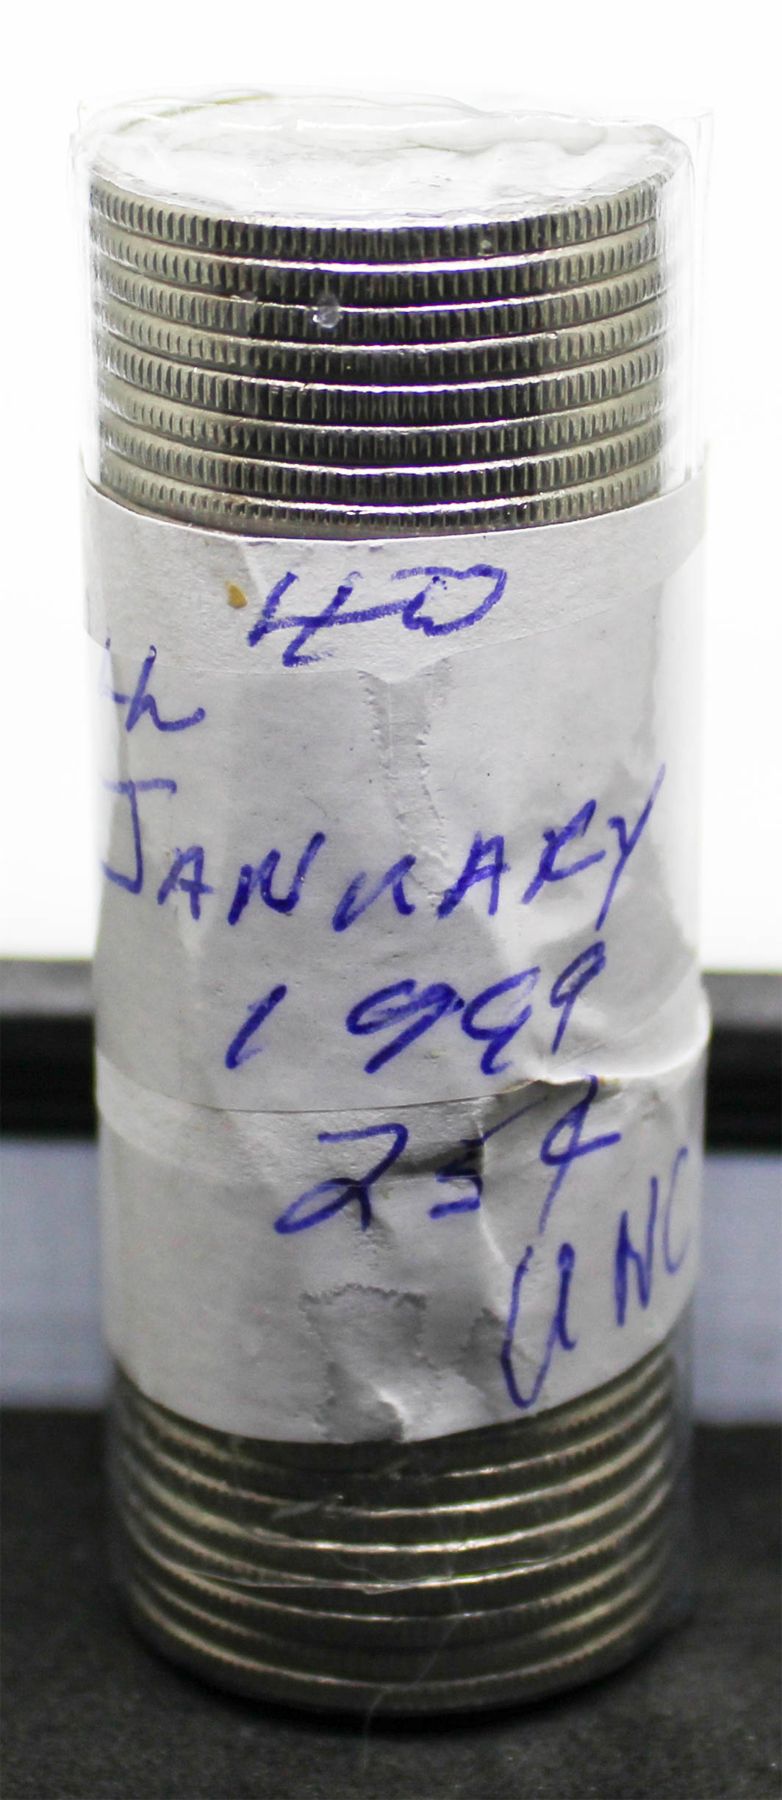 40
JANUARY
1999
25¢
UNC